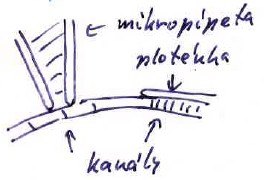 mikropipeta
ploténka
kanály